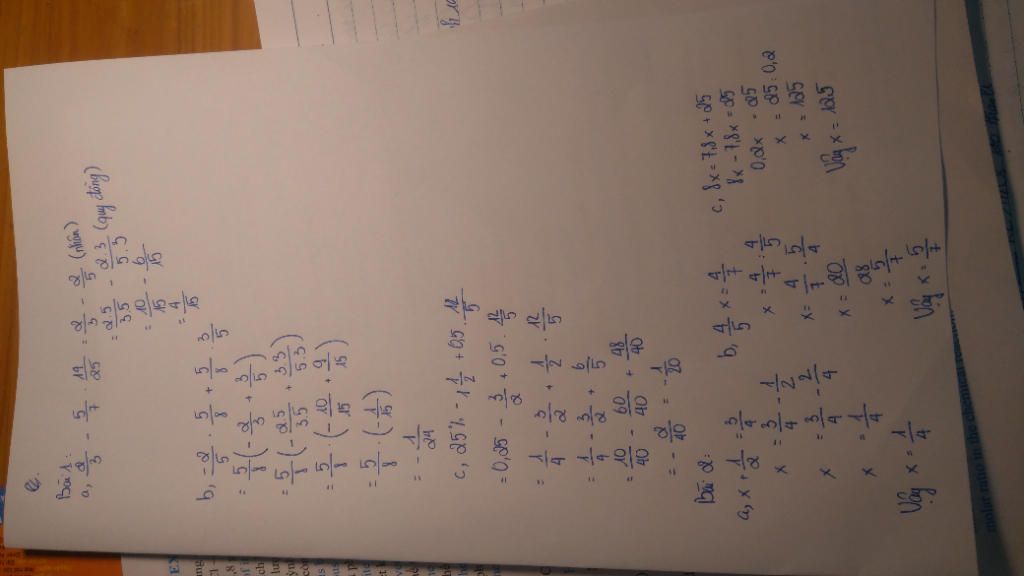 Bài 1:
a, 2/3 - 5/7 · 14/25 = 2/3 - 2/5 (nhân)
= 2.5/3.5 - 2.3/5.3 (quy đồng)
= 10/15 - 6/15
= 4/15
b, -2/5 · 5/8 + 5/8 · 3/5
= 5/8 (-2/3 + 3/5)
= 5/8 (-2.5/3.5 + 3.3/5.3)
= 5/8 · (-10/15 + 9/15)
= 5/8 · (-1/15)
= -1/24
c, 25% - 1 1/2 + 0,5 · 12/5
= 0,25 - 3/2 + 0,5 · 12/5
= 1/4 - 3/2 + 1/2 · 12/5
= 1/4 - 3/2 + 6/5
= 10/40 - 60/40 + 48/40
= -2/40 = -1/20
Bài 2:
a, x + 1/2 = 3/4
x = 3/4 - 1/2
x = 3/4 - 2/4
x = 1/4
Vậy x = 1/4
b, 4/5 x = 4/7
x = 4/7 : 4/5
x = 4/7 · 5/4
x = 20/28
x = 5/7
Vậy x = 5/7
c, 8x = 7,8x + 25
8x - 7,8x = 25
0,2x = 25
x = 25 : 0,2
x = 125
Vậy x = 125